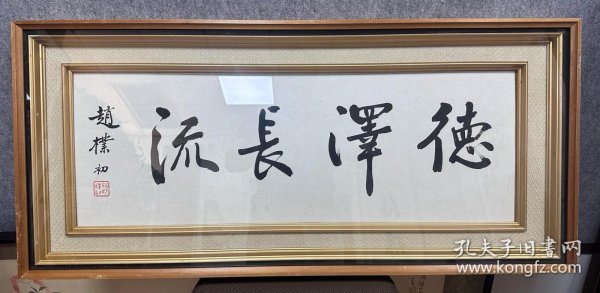 德澤長流
趙樸初
孔夫子旧書网
www.kongfz.com